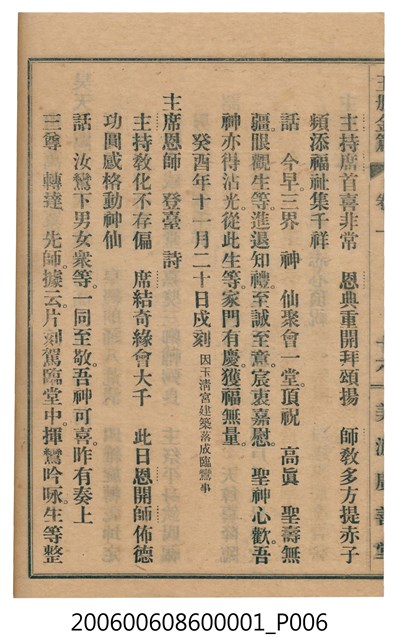 主持席首喜非常　恩典重開拜頌揚　師教多方提赤子
頻添福祉集千祥
話　今早。三界　神　仙聚會一堂。頂祝　高眞　聖壽無
疆。眼觀生等。進退知禮。至誠至虔。宸衷嘉慰。聖神心歡。吾
神亦得沾光。從此生等。家門有慶。獲福無量。
癸酉年十一月二十日戌刻 因玉清宮建築落成臨鸞事
主席恩師　登臺　詩
主持敎化不存偏　席結奇緣會大千　此日恩開師佈德
功圓感格動神仙
話　汝鸞下男女衆等。一同至敬。吾神可喜。昨有奏上
三尊。轉達　先師。據云。片刻駕臨堂中。揮鸞吟咏。生等整
200600608600001_P006